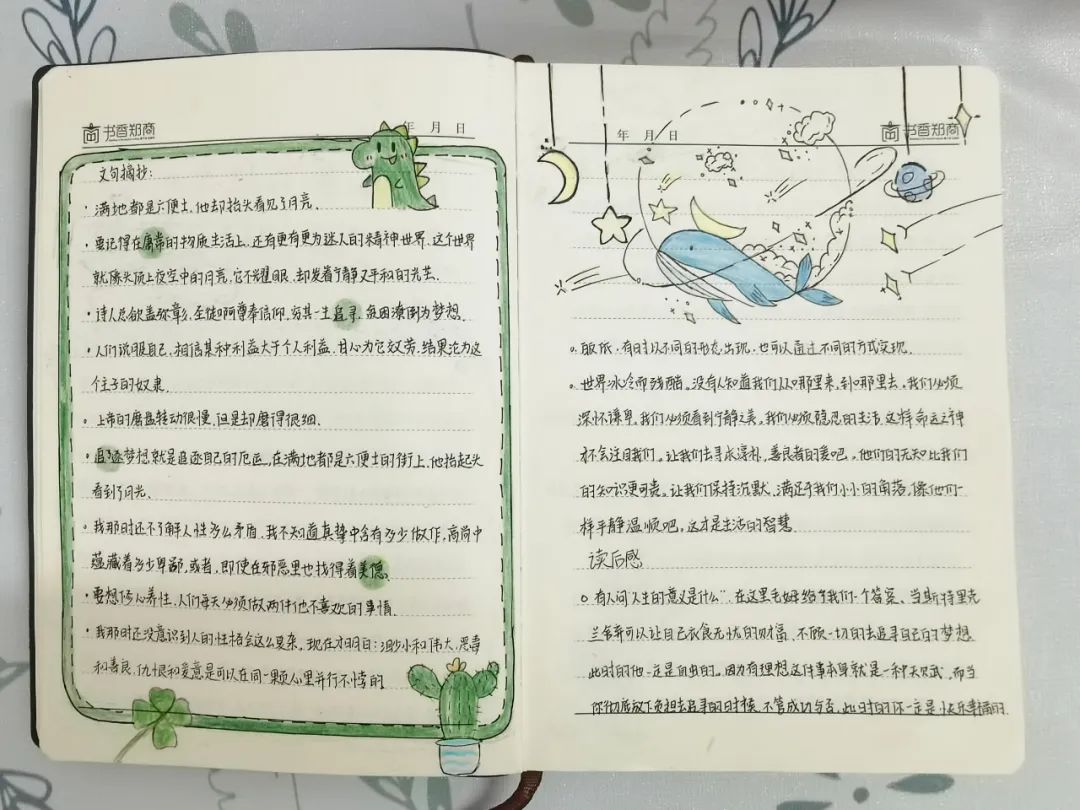 书香知商
年 月 日
文句摘抄:
·满地都是六便士,他却抬头看见了月亮.
·要记得在庸常的物质生活上,还有更有更为迷人的精神世界.这个世界
就像头顶上夜空中的月亮,它不耀眼,却发着宁静又平和的光芒.
·诗人总欲盖弥彰,圣徒 尊奉信仰,穷其一生追寻,
·人们说服自己,相信某种利益大于个人利益,甘心为它效劳,结果沦为这
个主子的奴隶.
·上帝的磨盘转动很慢,但是却磨得很细.
·追逐梦想就是追逐自己的厄运,在满地都是六便士的街上,他抬起头
看到了月光.
·我那时还不了解人性多么矛盾,我不知道真挚中含有多少做作,高尚中
蕴藏着多少卑鄙,或者,即使在邪恶里也找得着美德.
·要想修心养性,人们每天必须做两件他不喜欢的事情.
·我那时还没意识到人的性格会这么复杂,现在才明白:渺小和伟大,恶毒
和善良,仇恨和爱意是可以在同一颗心里并行不悖的
年 月 日
书香知商
有时以不同的形态出现,也可以通过不同的方式实现.
世界冰冷而残酷。没有人知道我们从哪里来,到哪里去。我们必须
深怀谦卑,我们必须看到宁静之美,我们必须隐忍的生活,这样命运之神
才不会注目我们。让我们去寻求淳朴,善良者的爱吧。他们的无知比我们
的知识更可贵。让我们保持沉默,满足于我们小小的角落,像他们一
样平静温顺吧。这才是生活的智慧
读后感
有人问“人生的意义是什么”,在这里毛姆给了我们一个答案、当斯特里克
兰舍弃可以让自己衣食无忧的财富、不顾一切的去追寻自己的梦想
此时的他一定是自由的。因为有理想这件事本身就是一种天赋,而当
你彻底放下负担去追寻的时候,不管成功与否,此时的你一定是快乐幸福的.